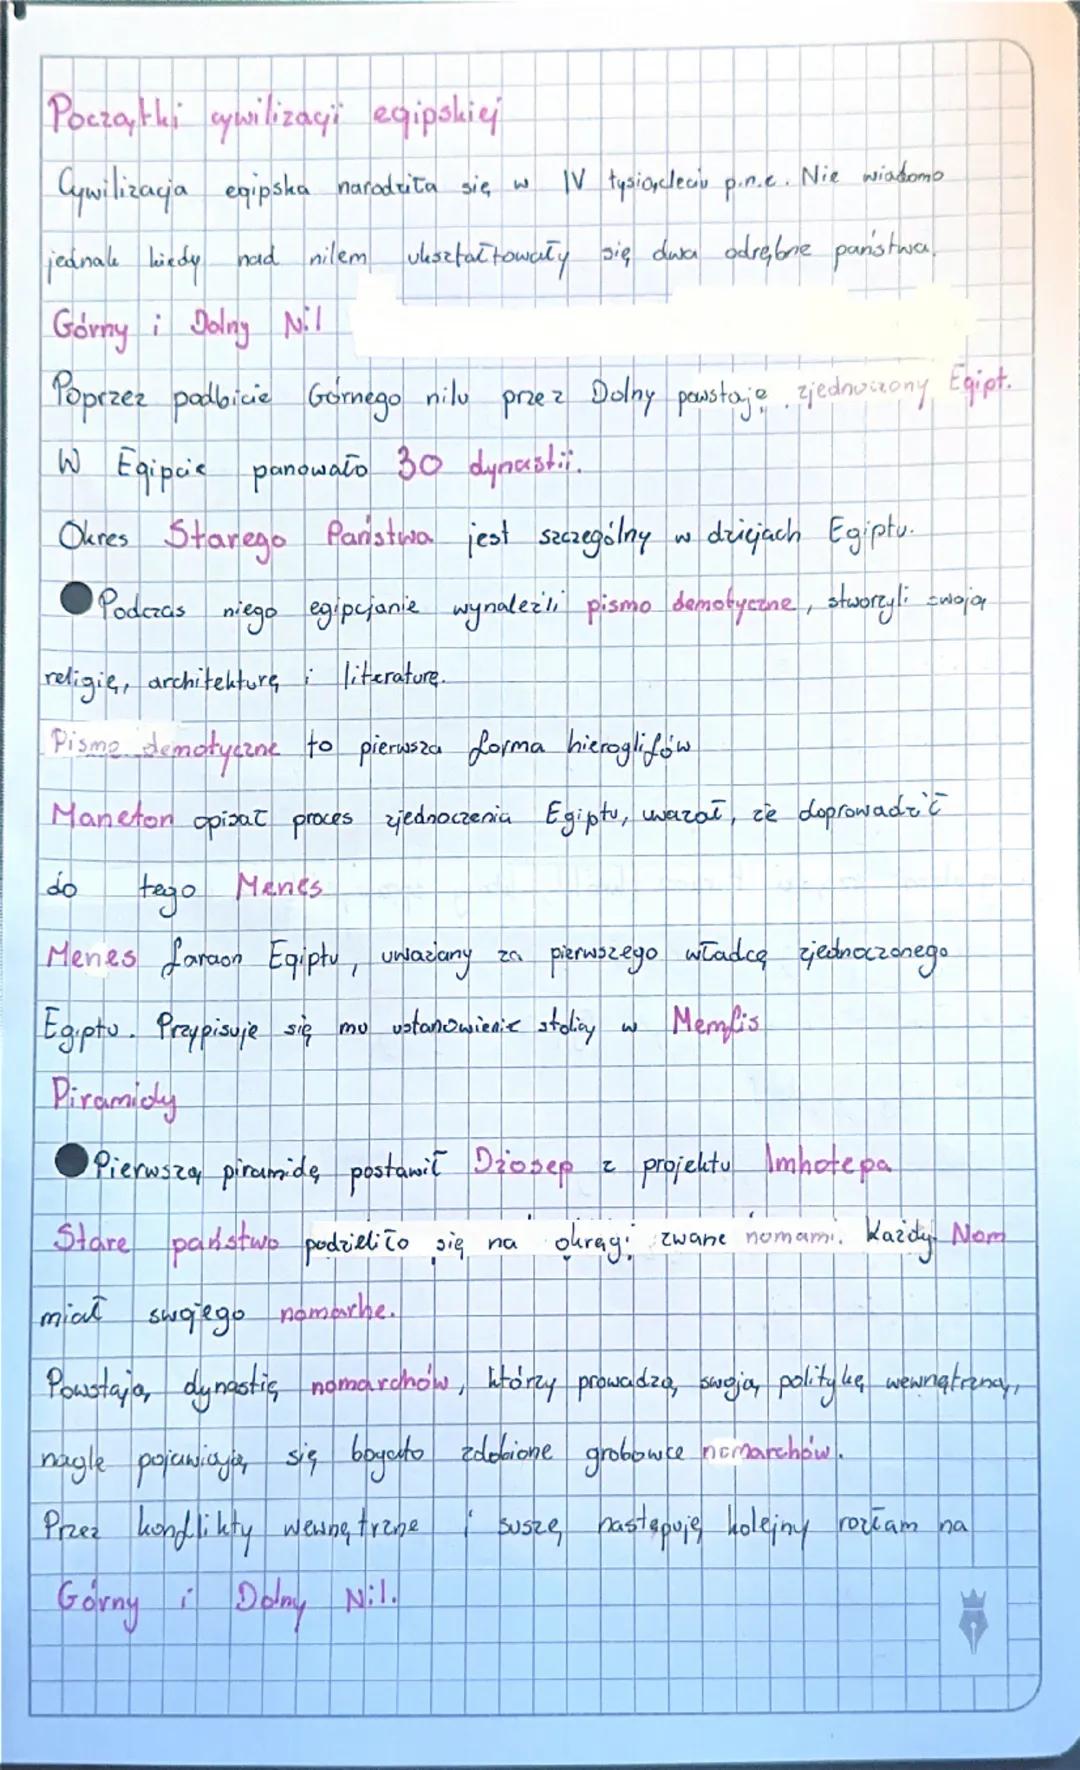 Początki cywilizacji egipskiej
Cywilizacja egipska narodziła się w IV tysiącleciu p.n.e. Nie wiadomo
jednak kiedy nad nilem ukształtowały się dwa odrębne państwa.
Górny i Dolny Nil
Poprzez podbicie Górnego nilu przez Dolny powstaję zjednoczony Egipt.
W Egipcie panowało 30 dynastii.
Okres Starego Państwa jest szczególny w dziejach Egiptu.
Podczas niego egipcjanie wynaleźli pismo demotyczne, stworzyli swoją
religię, architekturę i literaturę.
Pismo demotyczne to pierwsza forma hieroglifów
Maneton opisał proces zjednoczenia Egiptu, uważał, że doprowadził
do tego Menes
Menes faraon Egiptu, uważany za pierwszego władcę zjednoczonego
Egiptu. Przypisuje się mu ustanowienie stolicy w Memfis
Piramidy
Pierwszą piramidę postawił Dżosep z projektu Imhotepa
Stare państwo podzieliło się na okręgi zwane nomami. Każdy Nom
miał swojego nomarhe.
Powstają dynastię nomarchów, którzy prowadzą swoją politykę wewnętrzną,
nagle pojawiają się bogato zdobione grobowce nomarchów.
Przez konflikty wewnętrzne i suszę następuję kolejny rozłam na
Górny i Dolny Nil.